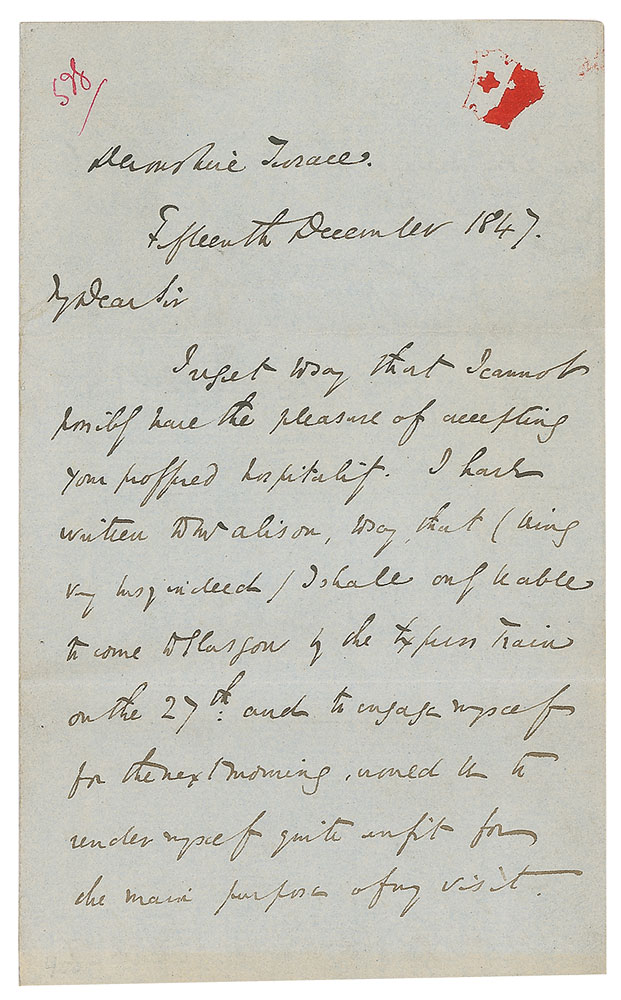 598/
Devonshire Terrace.
Fifteenth December 1847.
My Dear Sir
I regret to say that I cannot
possibly have the pleasure of accepting
your proffered hospitality. I have
written to Mr Alison, to say, that (being
very busy indeed) I shall only be able
to come to Glasgow by the Express Train
on the 27th. and to engage myself
for the next morning, would be to
render myself quite unfit for
the main purpose of my visit.